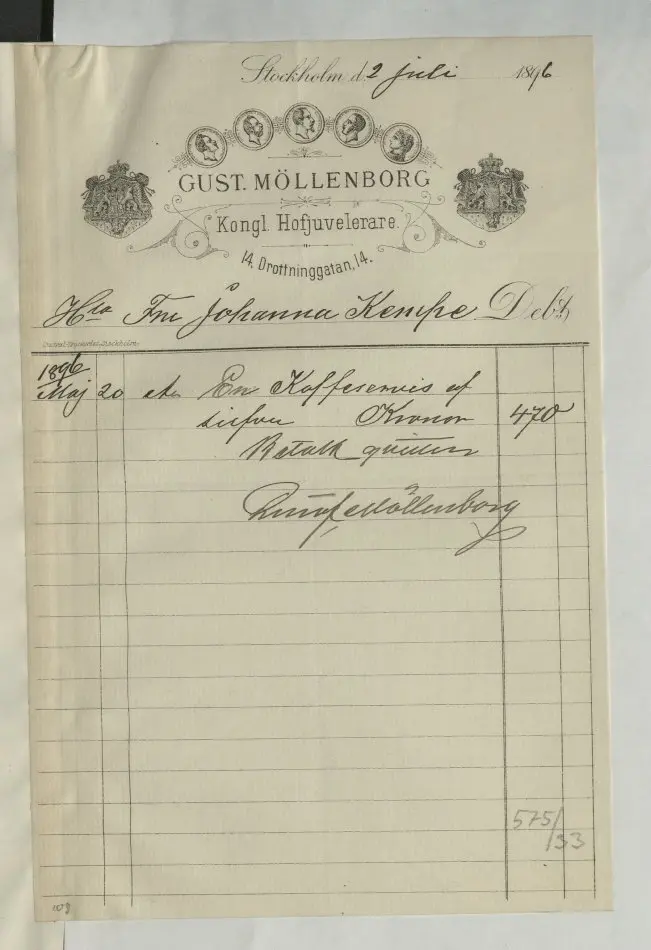 Stockholm d. 2 juli 1896
GUST. MÖLLENBORG
Kongl. Hofjuvelerare.
14, Drottninggatan, 14.
Fru Johanna Kempe Debet,
1896
Maj 20 En Kaffeservis af
silfver Kronor 470
Betalt qvitteras
Möllenborg
575/33